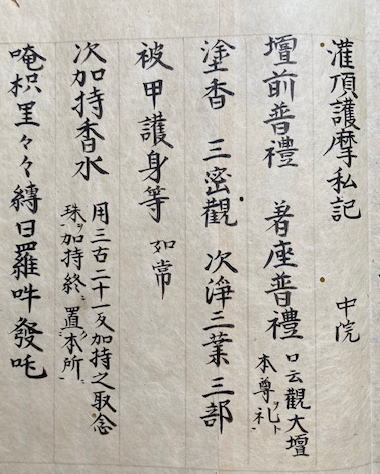 灌頂護摩私記　中院
壇前普禮　着座普禮　口云觀大壇
本尊ヲ礼ト
塗香　三密觀　次淨三業三部
被甲護身等　如常
次加持香水　用三古二十一反加持之取念
珠ヲ加持終置本所
唵枳里々々縛日羅吽發吒